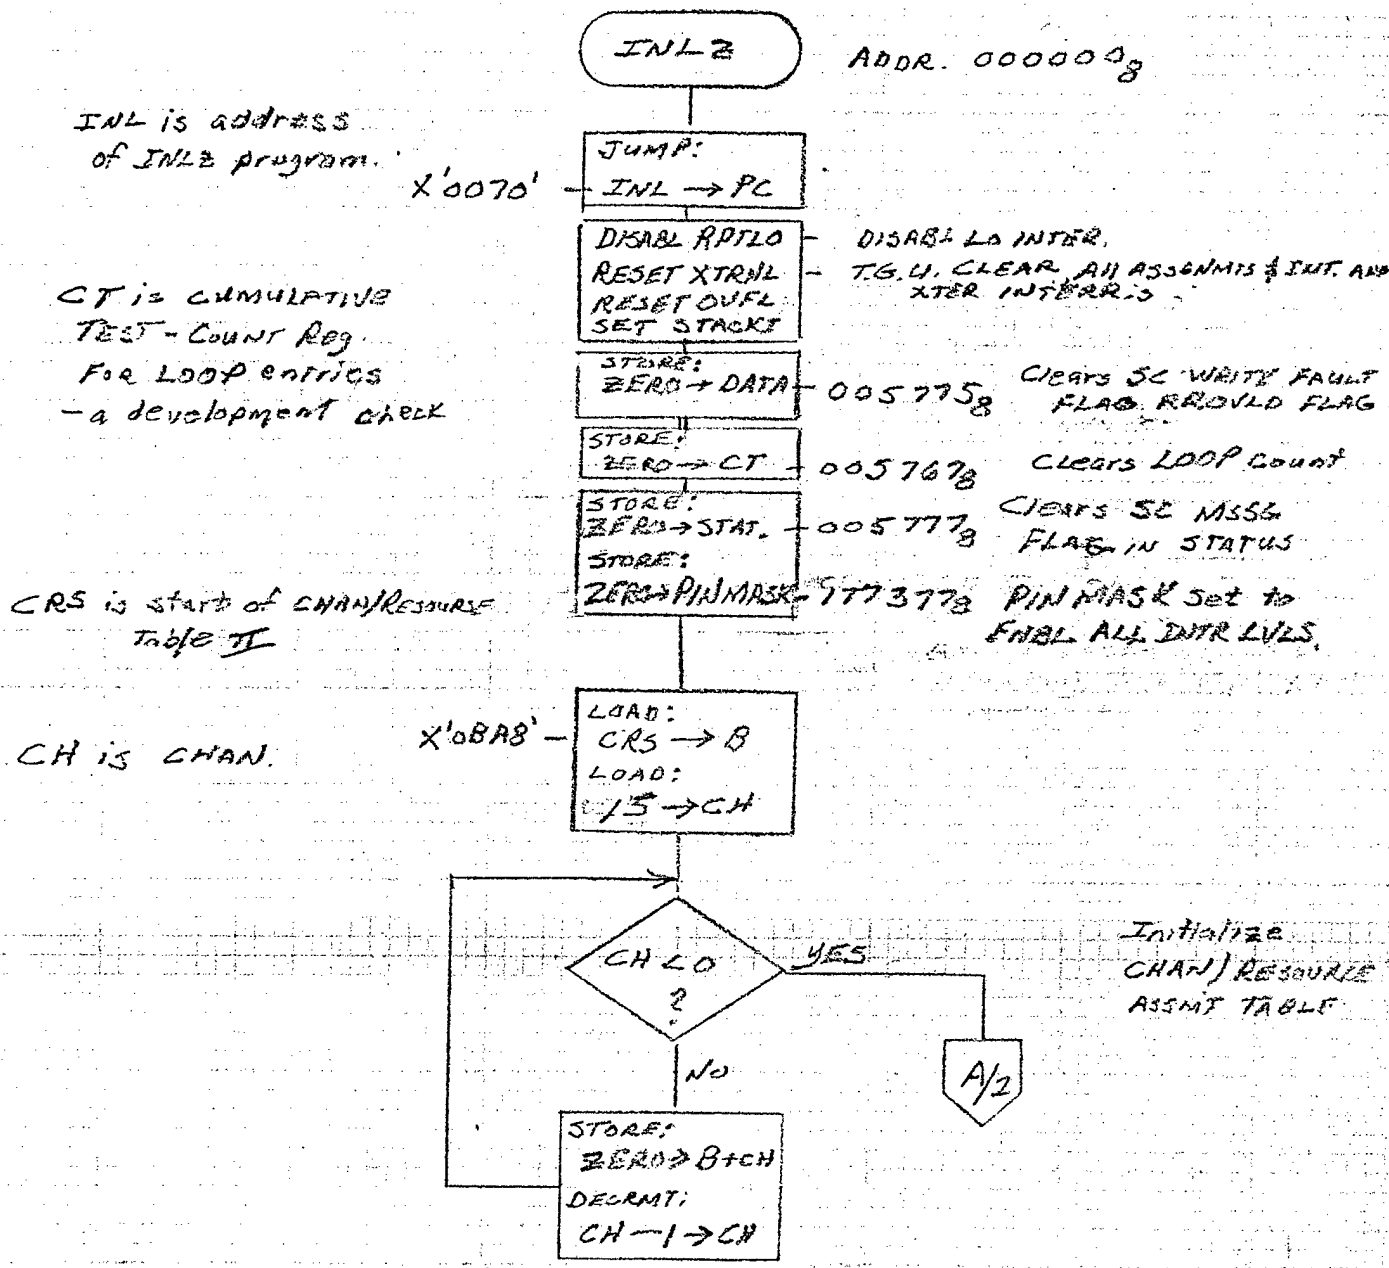 INLZ
ADDR. 000000₈
INL is address
of INLZ program.
JUMP:
X'0070' - INL → PC
DISABL RPTLO - DISABL LO INTER.
RESET XTRNL - T.G.U. CLEAR All ASSGNMTS & INT. AND
XTER INTERR.S
RESET OVFL
SET STACKT
CT is CUMULATIVE
TEST - COUNT Reg.
FOR LOOP entries
- a development check
STORE:
ZERO → DATA - 005775₈
Clears SC WRITE FAULT
FLAG RROVLD FLAG
STORE:
ZERO → CT - 005767₈ Clears LOOP Count
STORE:
ZERO → STAT. - 005777₈ Clears SC MSSG
FLAG IN STATUS
STORE:
ZERO → PINMASK - 177377₈ PIN MASK set to
ENBL ALL INTR LVLS.
CRS is start of CHAN/RESOURSE
Table II
LOAD:
X'0BA8' - CRS → B
LOAD:
15 → CH
CH is CHAN.
CH < 0
?
YES
A/2
Initialize
CHAN/RESOURCE
ASSMT TABLE
NO
STORE:
ZERO → B+CH
DECRMT:
CH - 1 → CH